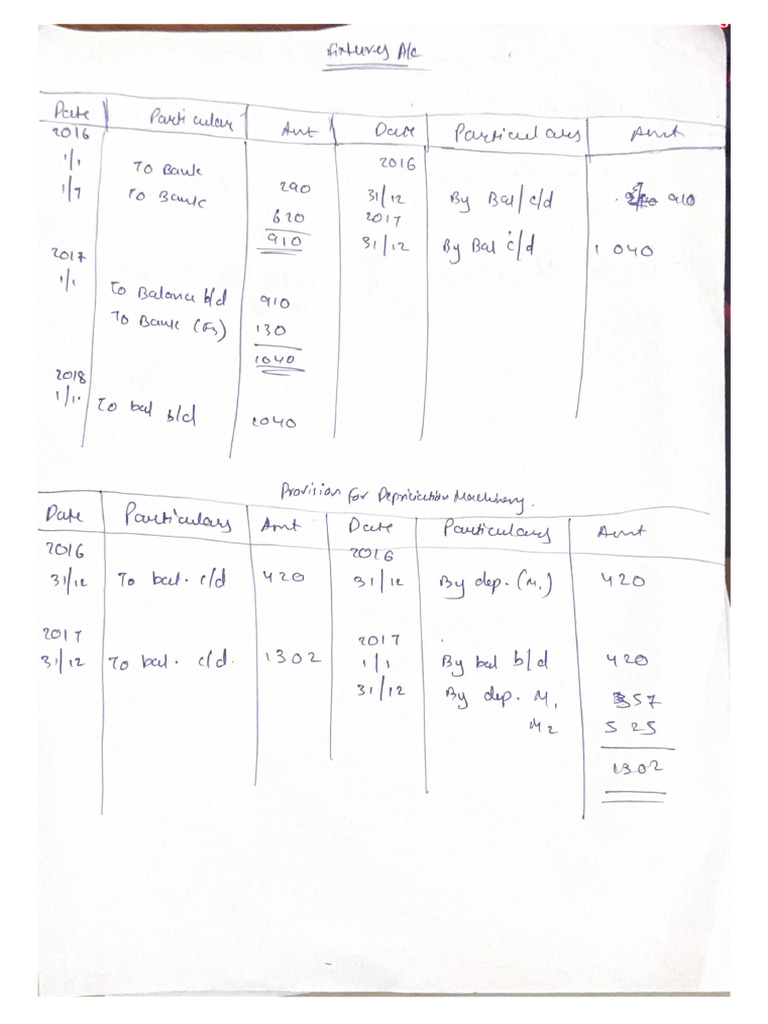 Fixtures A/c
Date Particular Amt Date Particulars Amt
2016 2016
1/1 To Bank 290 31/12 By Bal/c/d 910
1/7 To Bank 620 2017
910 31/12 By Bal c/d 1 040
2017
1/1 To Balance b/d 910
To Bank (F3) 130
1040
2018
1/1. To bal b/d 1040
Provision for Depriciation Machinery.
Date Particulars Amt Date Particulars Amt
2016 2016
31/12 To bal. c/d 420 31/12 By dep. (M1) 420
2017 2017
31/12 To bal. c/d. 1302 1/1 By bal b/d 420
31/12 By dep. M1 357
M2 525
1302